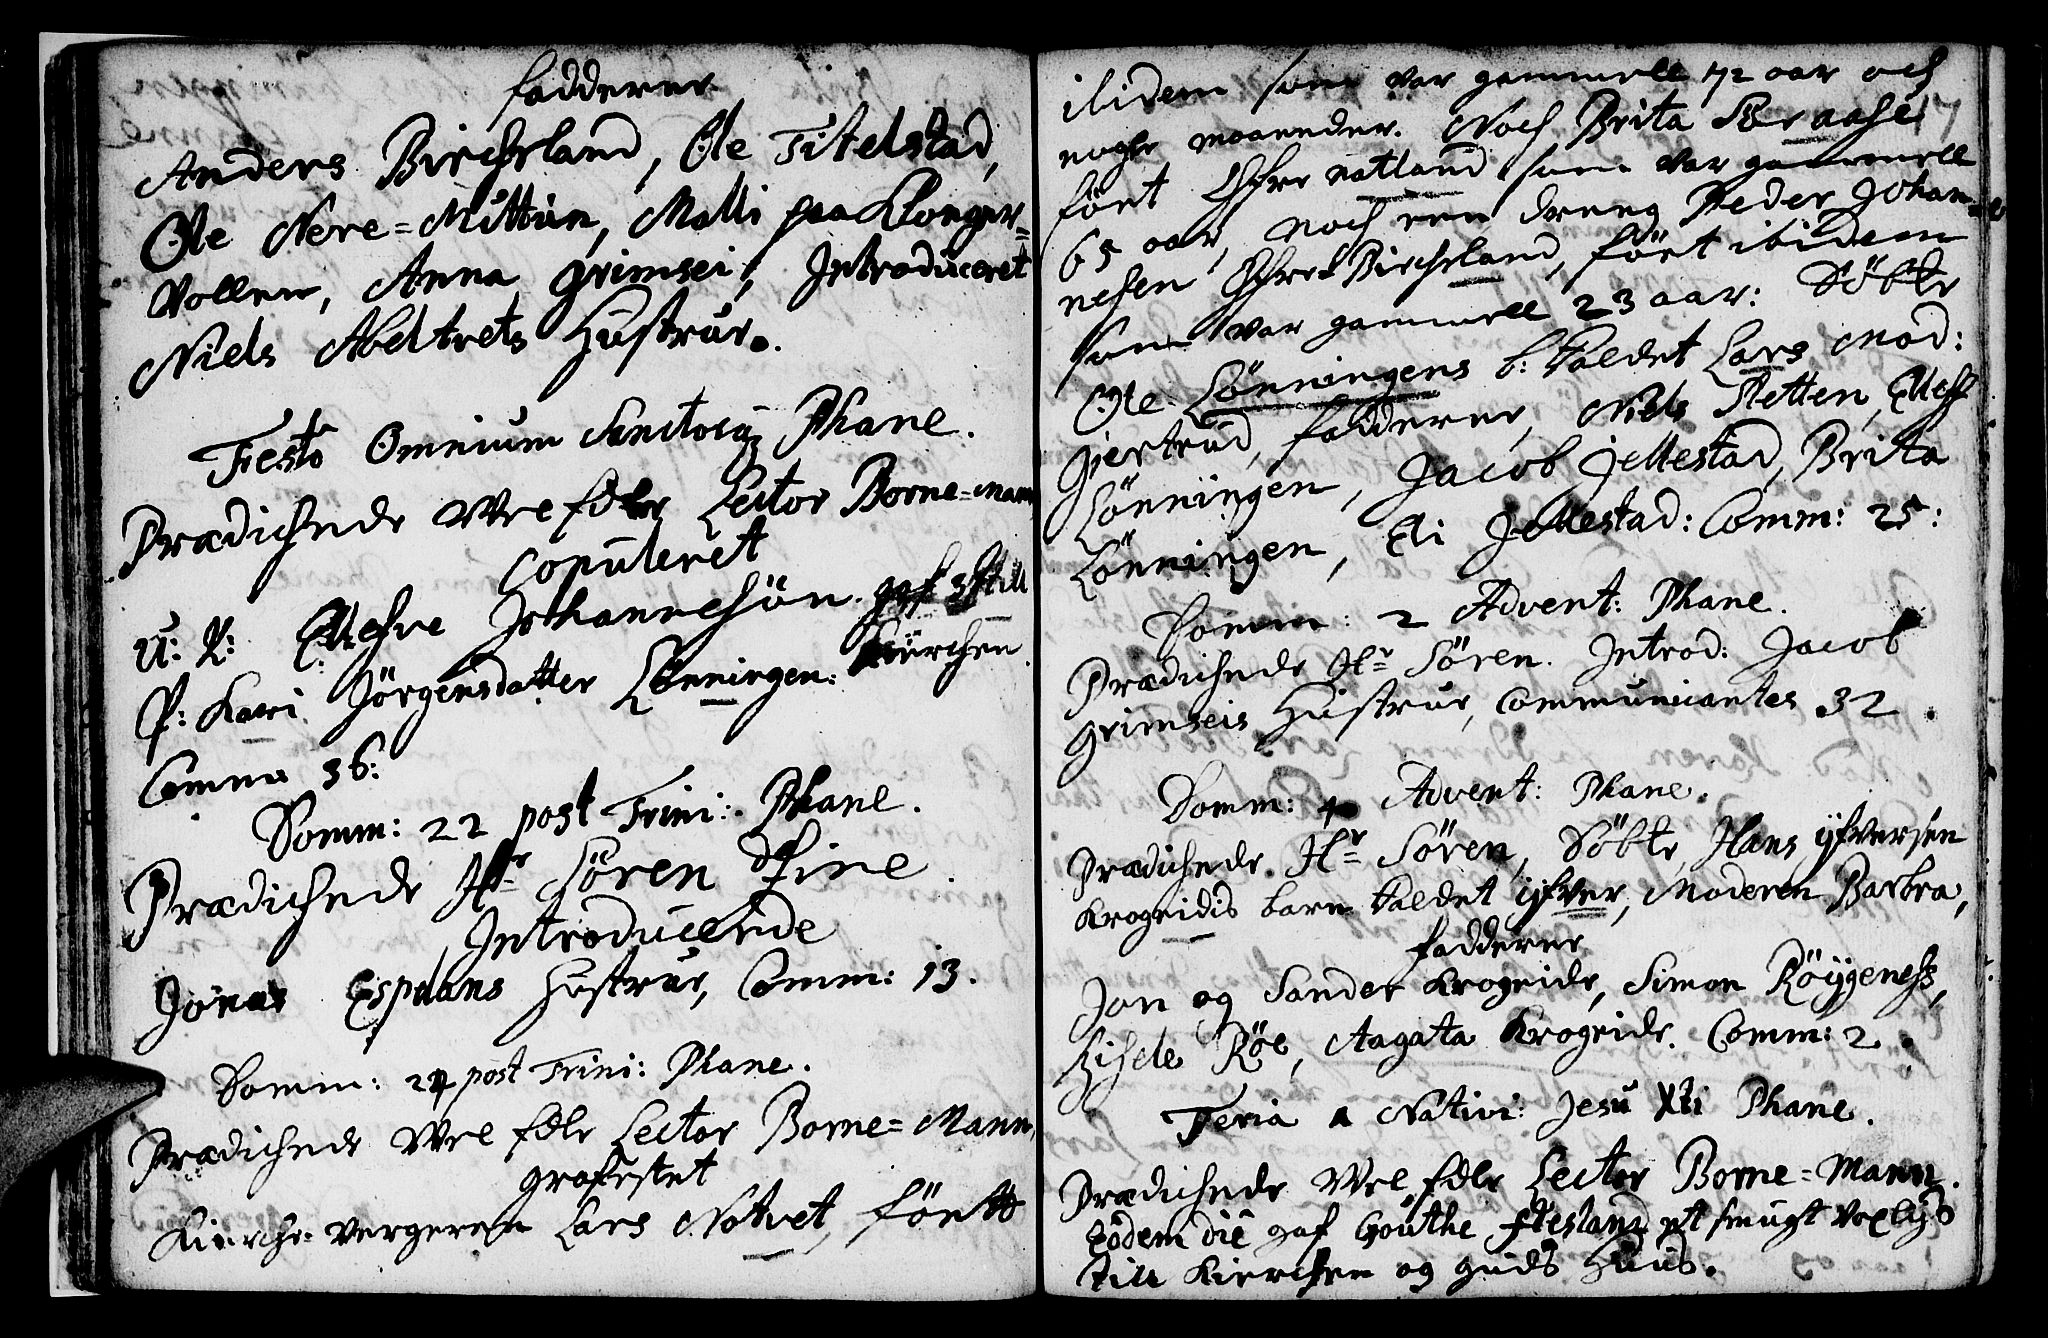 fadderer
Anders Bircheland, Ole Titelstad,
Ole Nere=Mittun, Malli paa Klonger=
Vollen, Anna Grimsei, Introduceret
Niels Abeltvets Hustrur.
Festo Omnium Sanctorũ Phane.
Prædichede Wel edle Lector Borne=man
Copuleret
U: K: Ellefve Johannesön. gaf 3 till
P: Kari Jörgensdatter Lønningen: Kirchen.
Comm 36:
Domm: 22 post Trini: Phane.
Prædichede Hr Sören Fine.
Introducerede
Jonas Espelans Hustrur, Comm: 13.
Domm: 24 post Trini: Phane.
Prædichede Wel edle Lector Borne=Mann,
grafestet
Kirche=vergeren Lars Nøtvet, föett
ibidem som var gammell 72 aar och
nogle maaneder. Noch Brita
föet Natland som var gammell
65 aar, noch een dreng Peder Johan=
nesen Bircheland, föet ibidem
som var gammell 23 aar: Döbte
Ole Lønningens b: kaldet Lars Mod:
Giertrud, fadderer, Niels Sletten, Ellef
Lønningen, Jacob Jellestad, Brita
Lønningen, Eli Jellestad: Comm: 25:
Domm: 2 Advent: Phane.
Prædichede Hr Sören. Introd: Jacob
Grimseis Hustrur, Communicantes 32.
Domm: 4 Advent: Phane.
Prædichede Hr Sören, Döbte, Hans Yfversen
Krogeidis barn kaldet Yfver, Moderen Barbra,
fadderer
Jon og Sander Krogeide, Simon Röygenes,
Zisele Røe, Aagata Krogeide. Comm: 2.
Feria 1 Nativi: Jesu Xti Phane.
Prædichede Wel edle Lector Borne=Mann.
Eodem die gaf Gouthe Flesland et smugt Voxlys
till Kierchen og guds Huus.